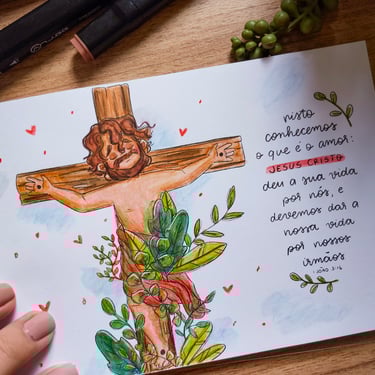 nisto
conhecemos
o que é o amor:
JESUS CRISTO
deu a sua vida
por nós, e
devemos dar a
nossa vida
por nossos
irmãos
1 JOÃO 3:16